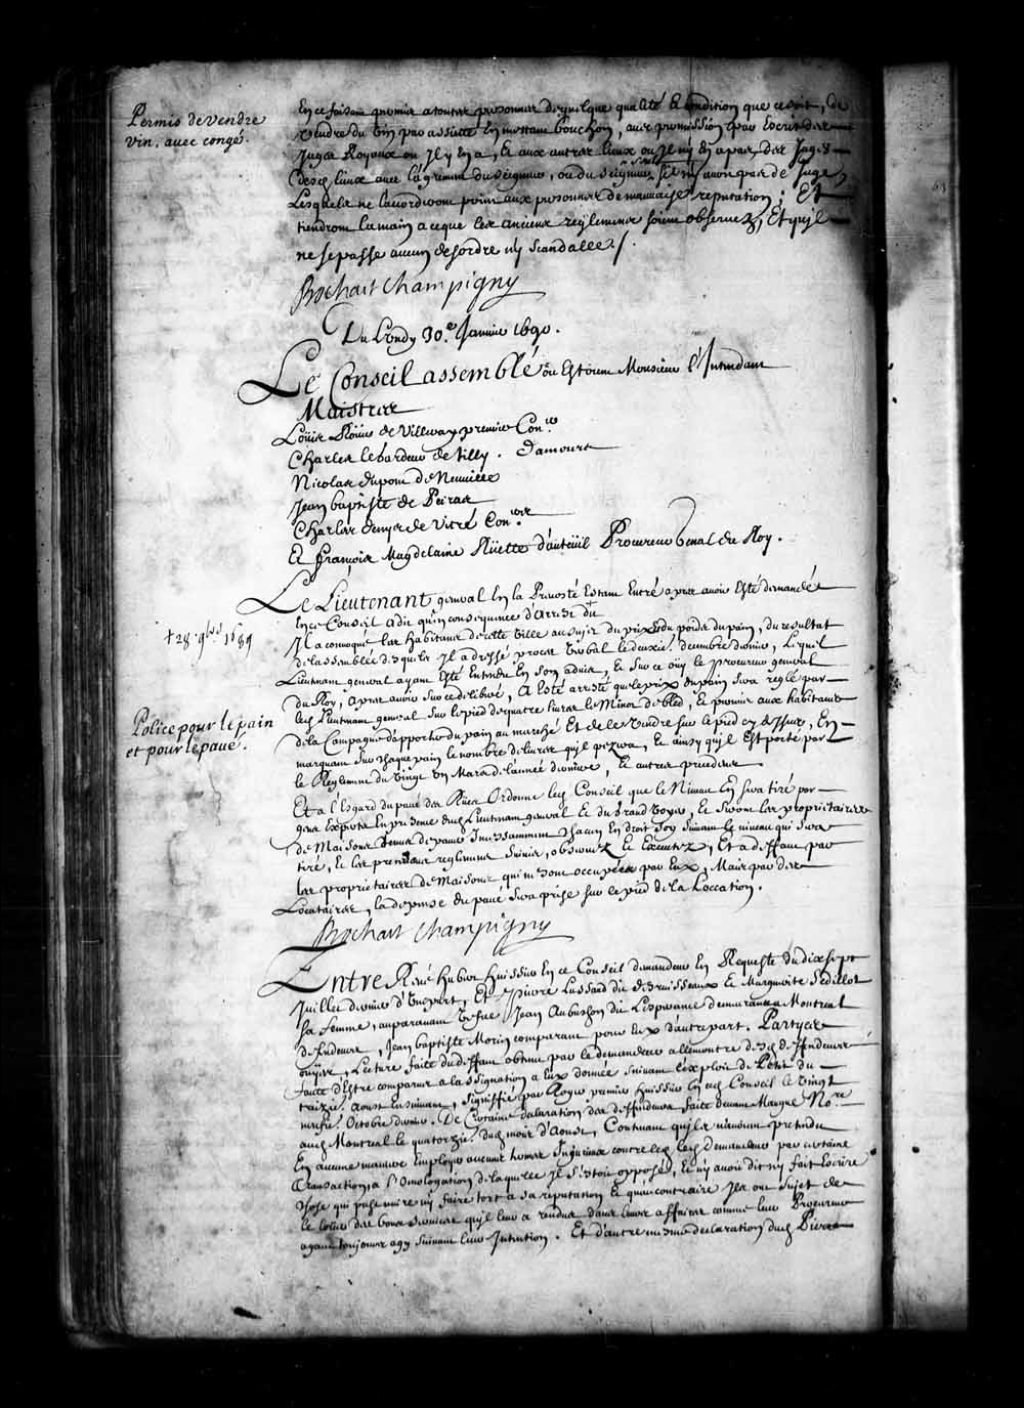 Permis de vendre
vin. avec congé.
En ce faisant permis a toutes personnes de quelque qualité & condition que ce soit, de
vendre du vin par assiette En mettant bouchon, avec permission par Escrit des
Juges Royaux ou Il y En a, & aux autres lieux ou Il ny En a pas, des Juges
Desd. lieux avec l'agrement du seigneur, ou du seigneur s'il ny avoit pas de Juge,
Lesquels ne l'accorderont point aux personnes de mauvaise reputation; Et
tiendront la main a ceque les anciens reglemens soient observez, Et quil
ne se passe aucun desordre ny scandalle ./.
Bochart Champigny
Du Lundy 30.e Janvier 1690.
Le Conseil assemblé ou Estoient Monsieur l'Intendant
Maistres
Loüis Roüer de Villeray premier Con.er
Charles le bardeur de Tilly. Damours
Nicolas dupont de Neuville
Jean baptiste de Peiras
Charles denys de Vitré Con.ers
Et François Magdelaine Rüette d'auteüil Procureur general du Roy.
Le Lieutenant general En la Prevosté Estant Entré apres avoir Esté demandé
En ce Conseil a dit qu'en consequence d'arrest du
† 28. 9bre 1689
Il a convoqué les habitans de cette Ville au sujet du prix & du poids du pain, du resultat
de lassemblée desquels Il a dressé procez verbal le deuxie. decembre dernier, Lequel
Lieutenant general ayant Esté Entendu En son advis, Et sur ce oüy le procureur general
du Roy, apres avoir sur ce deliberé, A Esté arresté que le prix du pain sera reglé par
led. Lieutenant general sur le pied de quatre livres le Minot de bled, & permis aux habitans
Police pour le pain
et pour le pavé.
de la Campagne d'apporter du pain au marché Et de le vendre sur le pied cy dessus, En
marquant sur chaque pain le nombre de livres qu'il pezera, Et ainsy qu'il Est porté par
le Reglement du vingt un Mars de l'année derniere, & autres precedens
Et a l'Esgard du pavé des Rües Ordonne led. Conseil que le Niveau En sera tiré par
gens Experts En presence dud. Lieutenant general & du grand Voyer, Et seront les proprietaires
de Maisons tenus de paver Incessamment chacun En droit soy suivant le niveau qui sera
tiré, Et les precedens reglemens suivis, observez & Executez, Et a deffaut par
les proprietaires de Maisons qui ne sont occupées par Eux, Mais par des
Locataires, la depense du pavé sera prise sur le pied de la Loccation.
Bochart Champigny
Entre René hubert huissier En ce Conseil demandeur En Requeste du dix sept
Juillet dernier d'Une part, Et Pierre Lussard dit desruisseaux & Marguerite Sedillot
sa femme, auparavant Vefue Jean Aubuchon dit Lesperance demeurans a Montreal
deffendeurs, Jean baptiste Morin comparant pour Eux d'autre part. Partyes
ouyes, Lecture faite du deffaut obtenu par le demandeur allencontre desd. deffendeurs
faute d'Estre comparus a lassignation a Eux donnée suivant l'exploit de Petit du
treizie. Aoust Ensuivant, signiffié par Roger premier huissier En ced. Conseil le Vingt
neufie. Octobre dernier. De Certaine declaration des deffendeurs faite devant Maugue No.re
aud. Montreal le quatorzie. dud. mois d'Aoust, Contenant qu'ils n'avoient pretendu
En aucune maniere Employer aucuns termes Injurieux contre led. led. demandeur par certaine
transaction a l'omologation de laquelle Il s'estoit opposé, Et ny avoir dit ny fait Escrire
chose qui puisse nuire ny faire tort a sa reputation Et qu'au contraire Ils ont sujet de
se loüer des bons services qu'il leur a rendus dans leurs affaires comme leur Procureur
ayant toujours agy suivant leur Intention. Et d'autre mesme declaration dud. Pierre